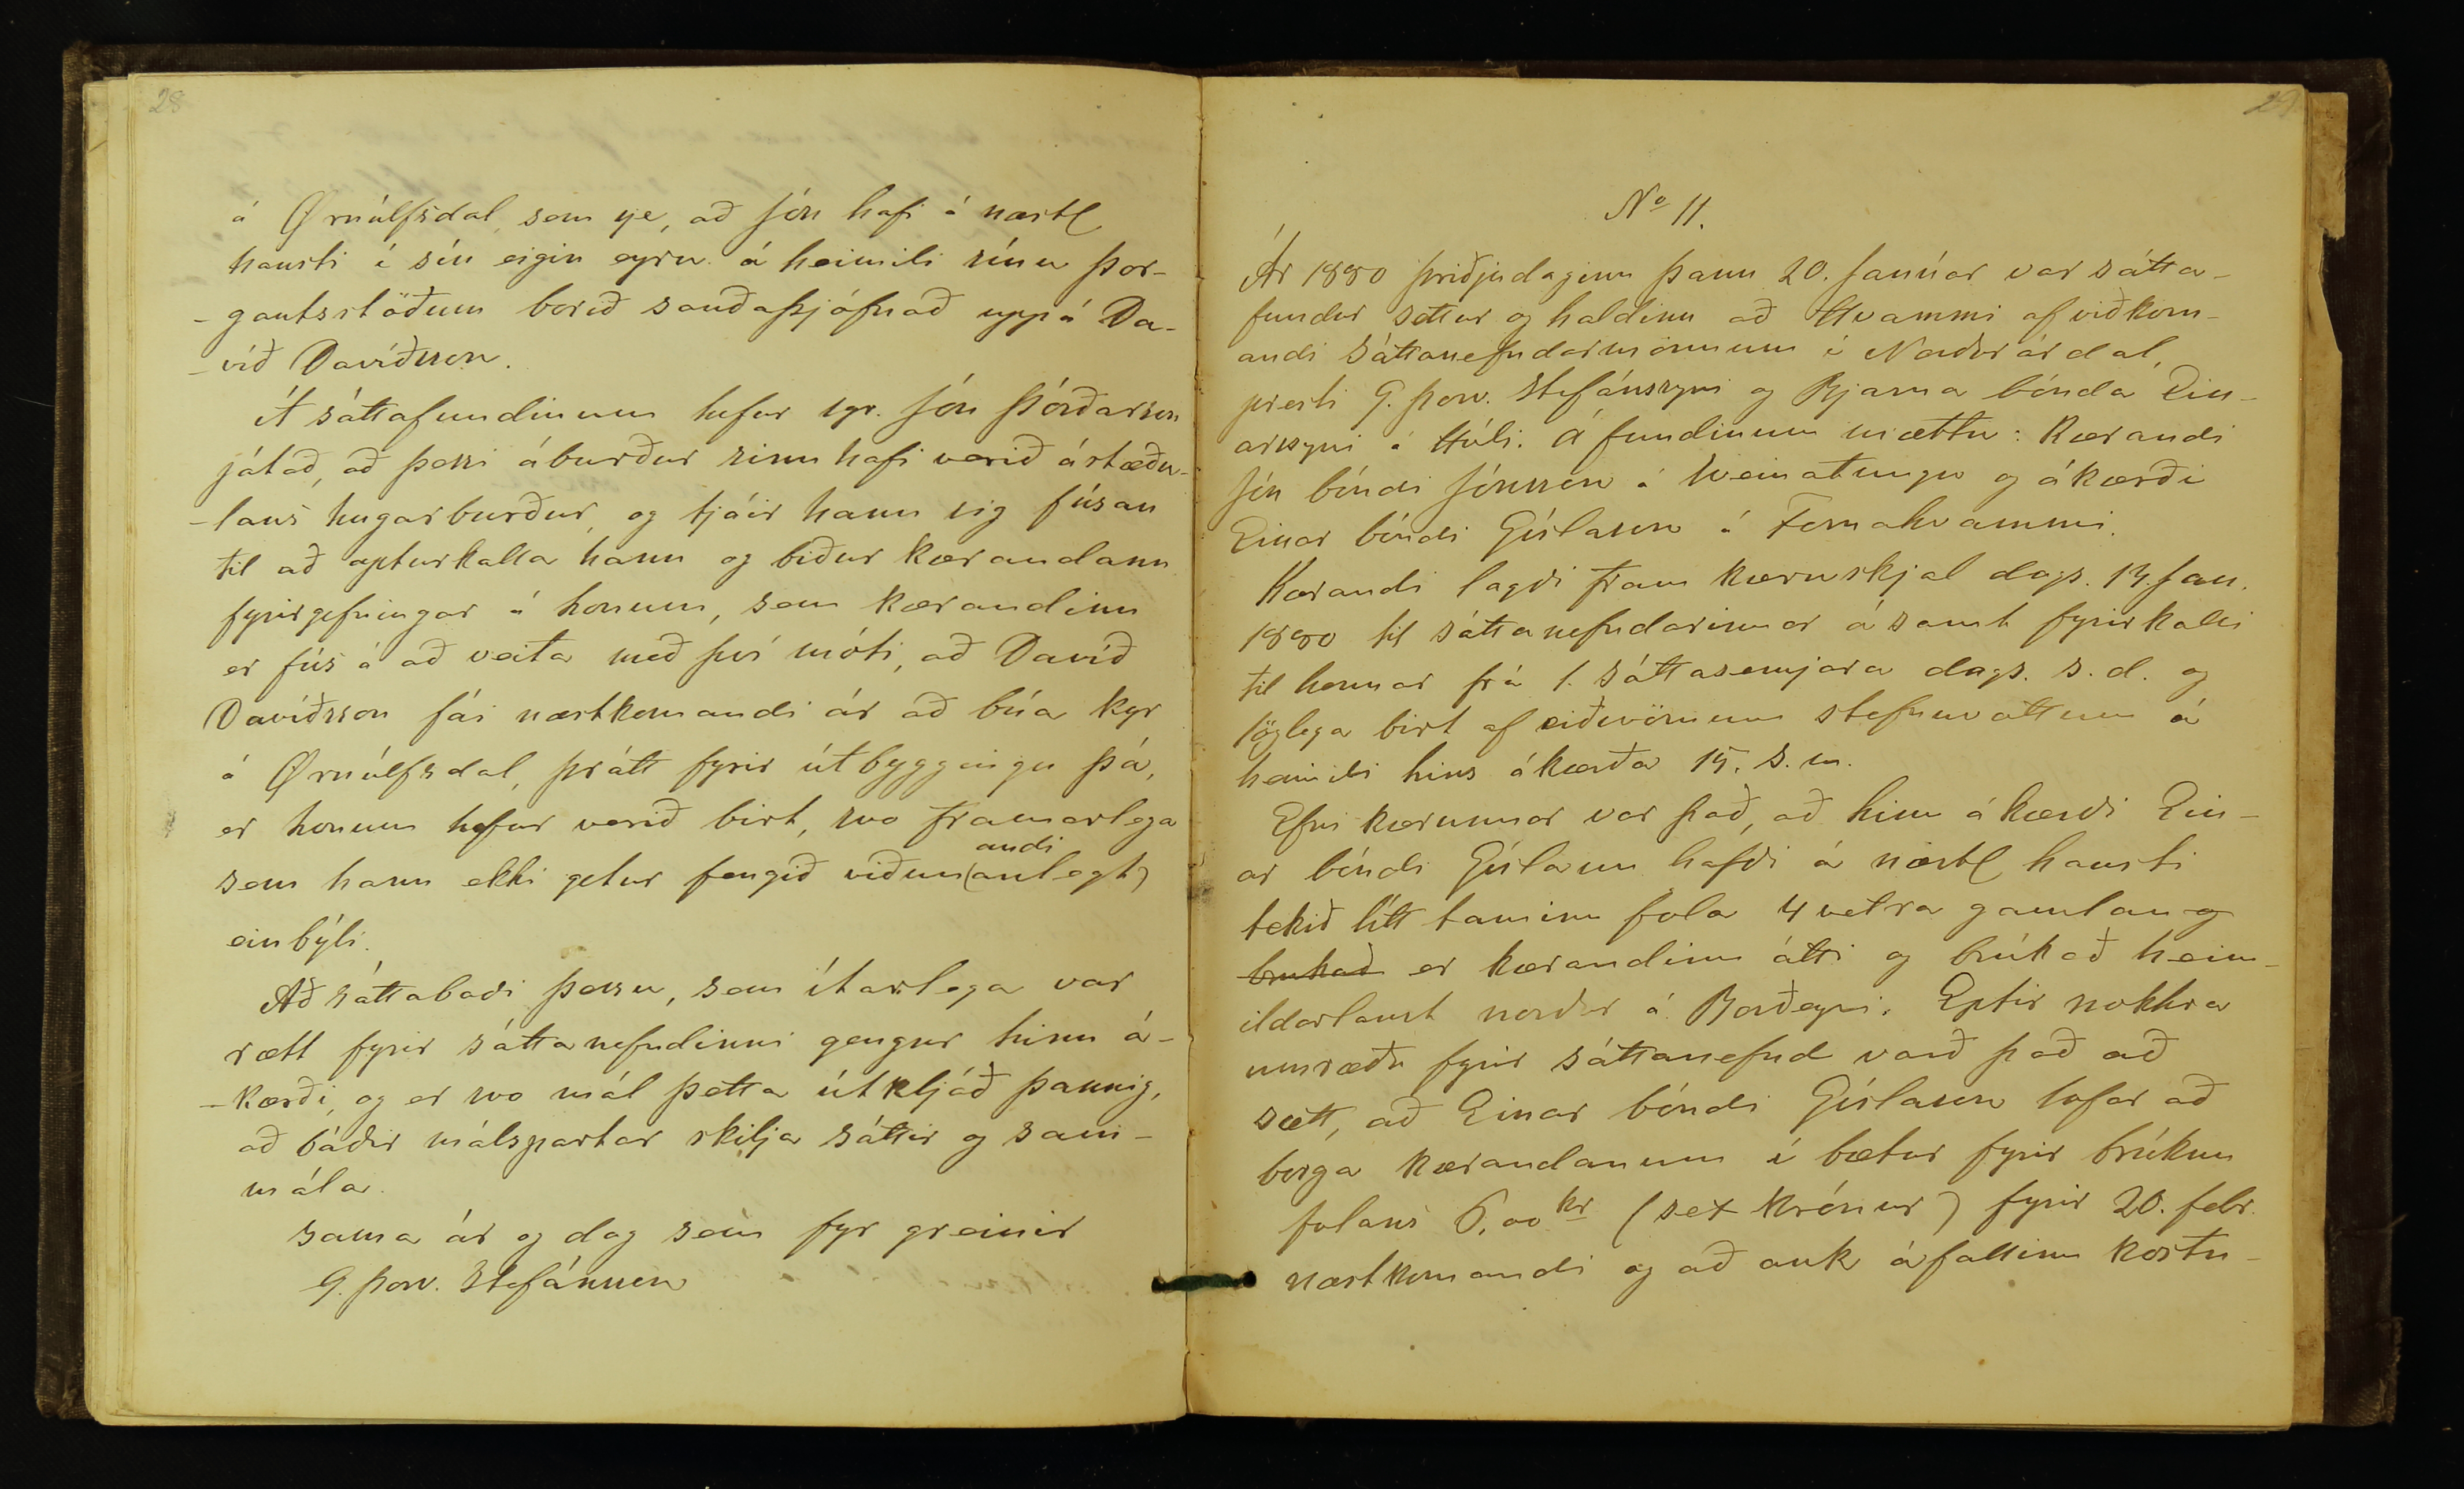 28
á Ørnúlfsdal, som sje, að Jón hafi á næstl
hausti í sín eigin eyru á heimili sínu Þor-
-gautsstöðum borið sauðaþjófnað uppá Da-
-víð Davíðsson.
Á sáttafundinum hefur sgr. Jón Þórðarson
játað, að þessi áburður sinn hafi verið ástæðu-
-laus hugarburður, og tjáir hann sig fúsan
til að apturkalla hann og biður kærandann
fyrirgefningar á honum, sem kærandinn
er fús á að veita með því móti, að Davíð
Davíðsson fái næstkomandi ár að búa kyr
á Ørnúlfsdal, þrátt fyrir útbyggingu þá,
er honum hefur verið birt, svo framarlega
andi
sem hann ekki getur fengið viðun(anlegt)
einbýli.
Að sáttaboði þessu, sem ítarlega var
rætt fyrir sáttanefndinni gengur hinn á-
-kærði, og er svo mál þetta útkljáð þannig,
að báðir málspartar skilja sáttir og sam-
mála.
sama ár og dag sem fyr greinir
G. Þorv. Stefánsson
29
No 11.
Ár 1880 þriðjudaginn þann 20. Janúar var sátta-
fundur settur og haldinn að Hvammi af viðkom-
andi sáttanefndarmönnum í Norðurárdal,
presti G. Þorv. Stefánssyni og Bjarna bónda Ein-
arssyni á Hóli. Á fundinum mættu: Kærandi
Jón bóndi Jónsson á Sveinatungu og ákærði
Einar bóndi Gíslason á Fornahvammi.
Kærandi lagði fram kæruskjal dags. 14. Jan.
1880 til sáttanefndarinnar ásamt fyrirkalli
til hennar frá 1. sáttasemjara dags. s.d. og
löglega birt af eiðsvörnum stefnuvottum á
heimili hins ákærða 15. s.m.
Efni kærunnar var það, að hinn ákærði Ein-
ar bóndi Gíslason hafði á næstl hausti
tekið lítt taminn fola 4 vetra gamlan og
brukað er kærandinn átti og brúkað heim-
ildarlaust norður á Borðeyri. Eptir nokkra
umræðu fyrir sáttanefnd varð það að
sætt, að Einar bóndi Gíslason lofar að
borga kærandanum í bætur fyrir brúkun
folans 6,00 kr (sex krónur) fyrir 20. febr.
næstkomandi og að auk áfallinn kostn-